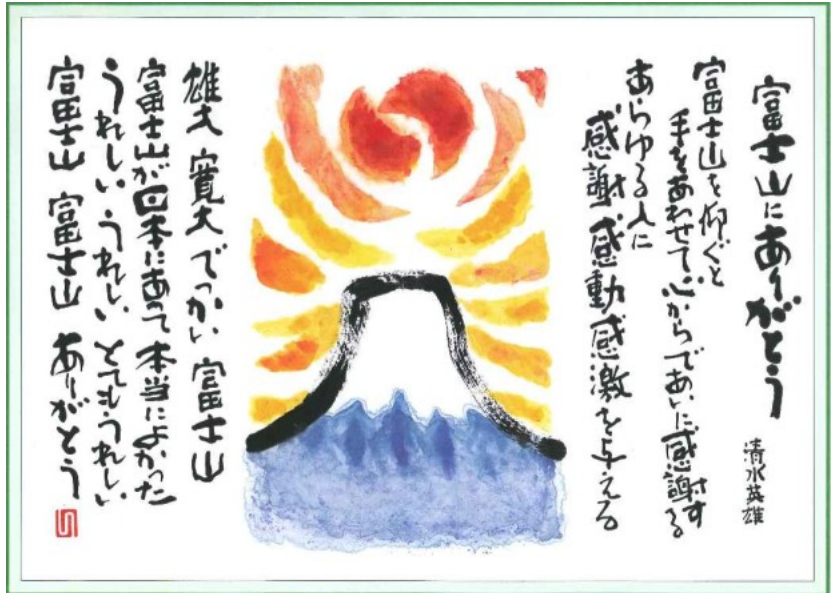 富士山にありがとう
清水英雄
富士山を仰ぐと
手をあわせて心からであいに感謝する
あらゆる人に
感謝感動感激を与える
雄大 寛大 でっかい 富士山
富士山が日本にあって本当によかった
うれしい うれしい とてもうれしい
富士山 富士山 ありがとう